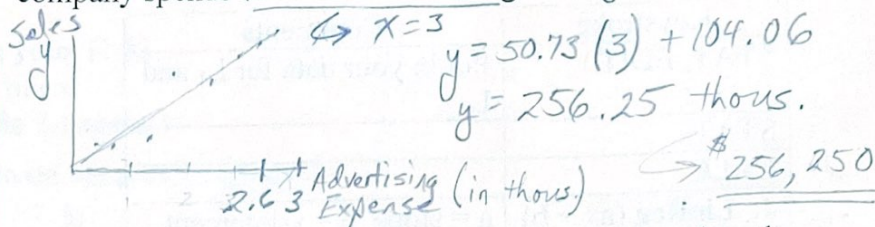 Sales
y
↔ x=3
y = 50.73 (3) + 104.06
y = 256.25 thous.
$256,250
1 2 2.6 3
Advertising Expense (in thous.)